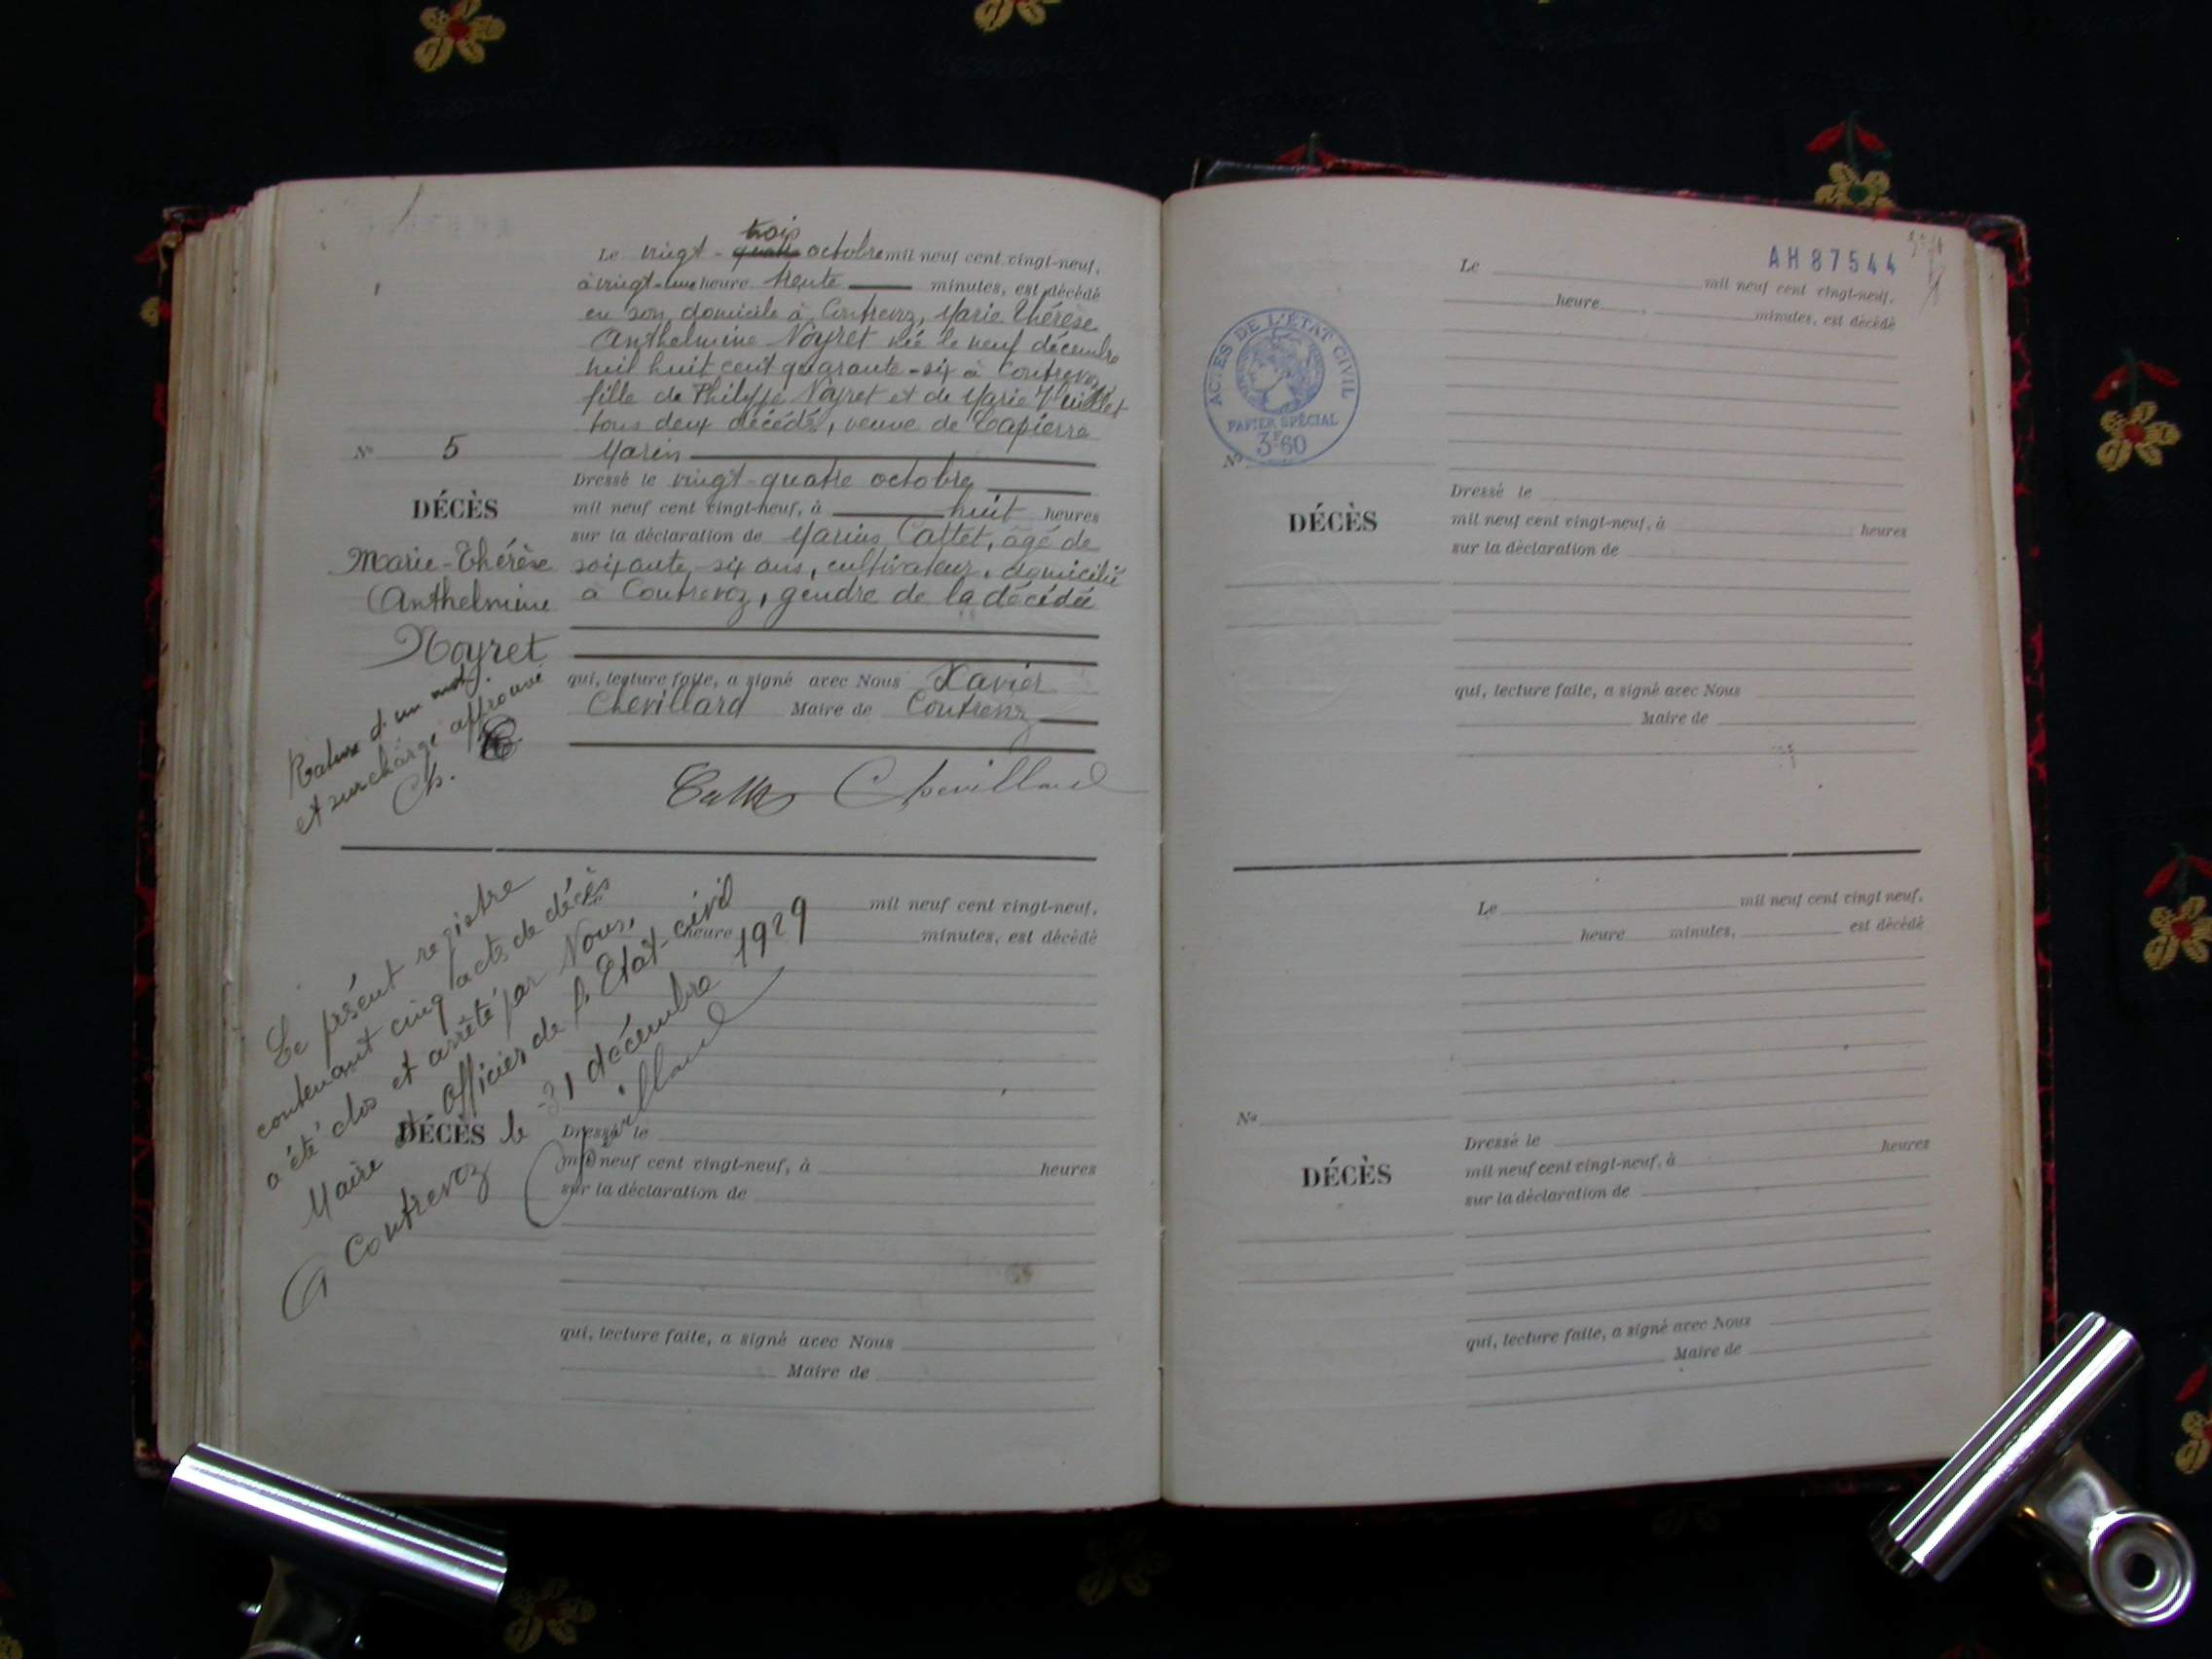 trois
Le vingt-quatre octobre mil neuf cent vingt-neuf,
à vingt-une heure trente minutes, est décédé
en son domicile à Contrevoz, Marie Thérèse
Anthelmine Noyret née le neuf décembre
mil huit cent quarante-six à Contrevoz,
fille de Philippe Noyret et de Marie
tous deux décédés, veuve de Lapierre
Marin
Nº 5
DÉCÈS
Marie-Thérèse
Anthelmine
Noyret
Rature d'un mot
et surcharge approuvé
Ch.
Dressé le vingt-quatre octobre
mil neuf cent vingt-neuf, à huit heures
sur la déclaration de Marius Cattet, âgé de
soixante-six ans, cultivateur, domicilié
à Contrevoz, gendre de la décédée
qui, lecture faite, a signé avec Nous Xavier
Chevillard Maire de Contrevoz
Chevillard
Le présent registre
contenant cinq actes de décès
a été clos et arrêté par Nous,
Maire et officier de l'Etat-civil
A Contrevoz le 31 décembre 1929
Chevillard
mil neuf cent vingt-neuf,
heure minutes, est décédé
DÉCÈS
Dressé le
mil neuf cent vingt-neuf, à heures
sur la déclaration de
qui, lecture faite, a signé avec Nous
Maire de
AH87544
Le mil neuf cent vingt-neuf,
heure minutes, est décédé
ACTES DE L'ÉTAT CIVIL
PAPIER SPÉCIAL
3F60
Nº
DÉCÈS
Dressé le
mil neuf cent vingt-neuf, à heures
sur la déclaration de
qui, lecture faite, a signé avec Nous
Maire de
Le mil neuf cent vingt neuf,
heure minutes, est décédé
Nº
DÉCÈS
Dressé le
mil neuf cent vingt-neuf, à heures
sur la déclaration de
qui, lecture faite, a signé avec Nous
Maire de